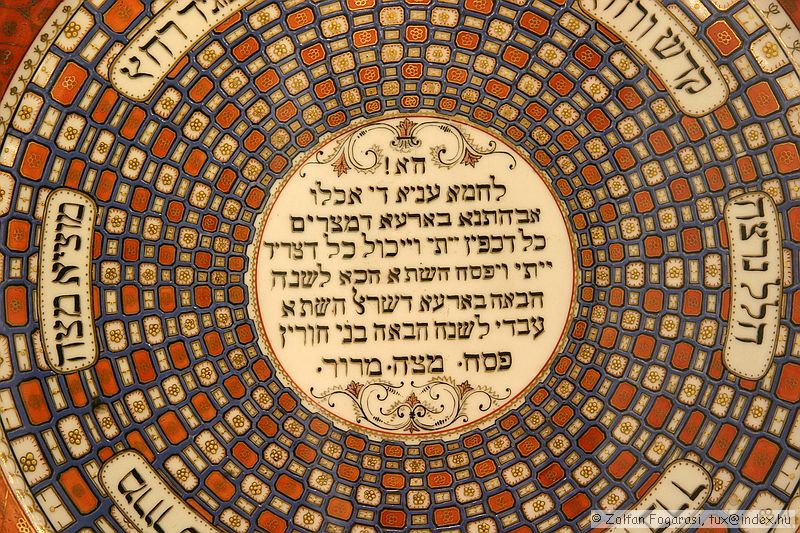 הא!
לחמא עניא די אכלו
אבהתנא בארעא דמצרים
כל דכפין ייתי וייכול כל דצריך
ייתי ויפסח השתא הכא לשנה
הבאה בארעא דשראל השתא
עבדי לשנה הבאה בני חורין
פסח· מצה· מרור·
קדש ורחץ
הלל נרצה
מוציא מצה
רחץ
© Zoltan Fogarasi, tux@index.hu